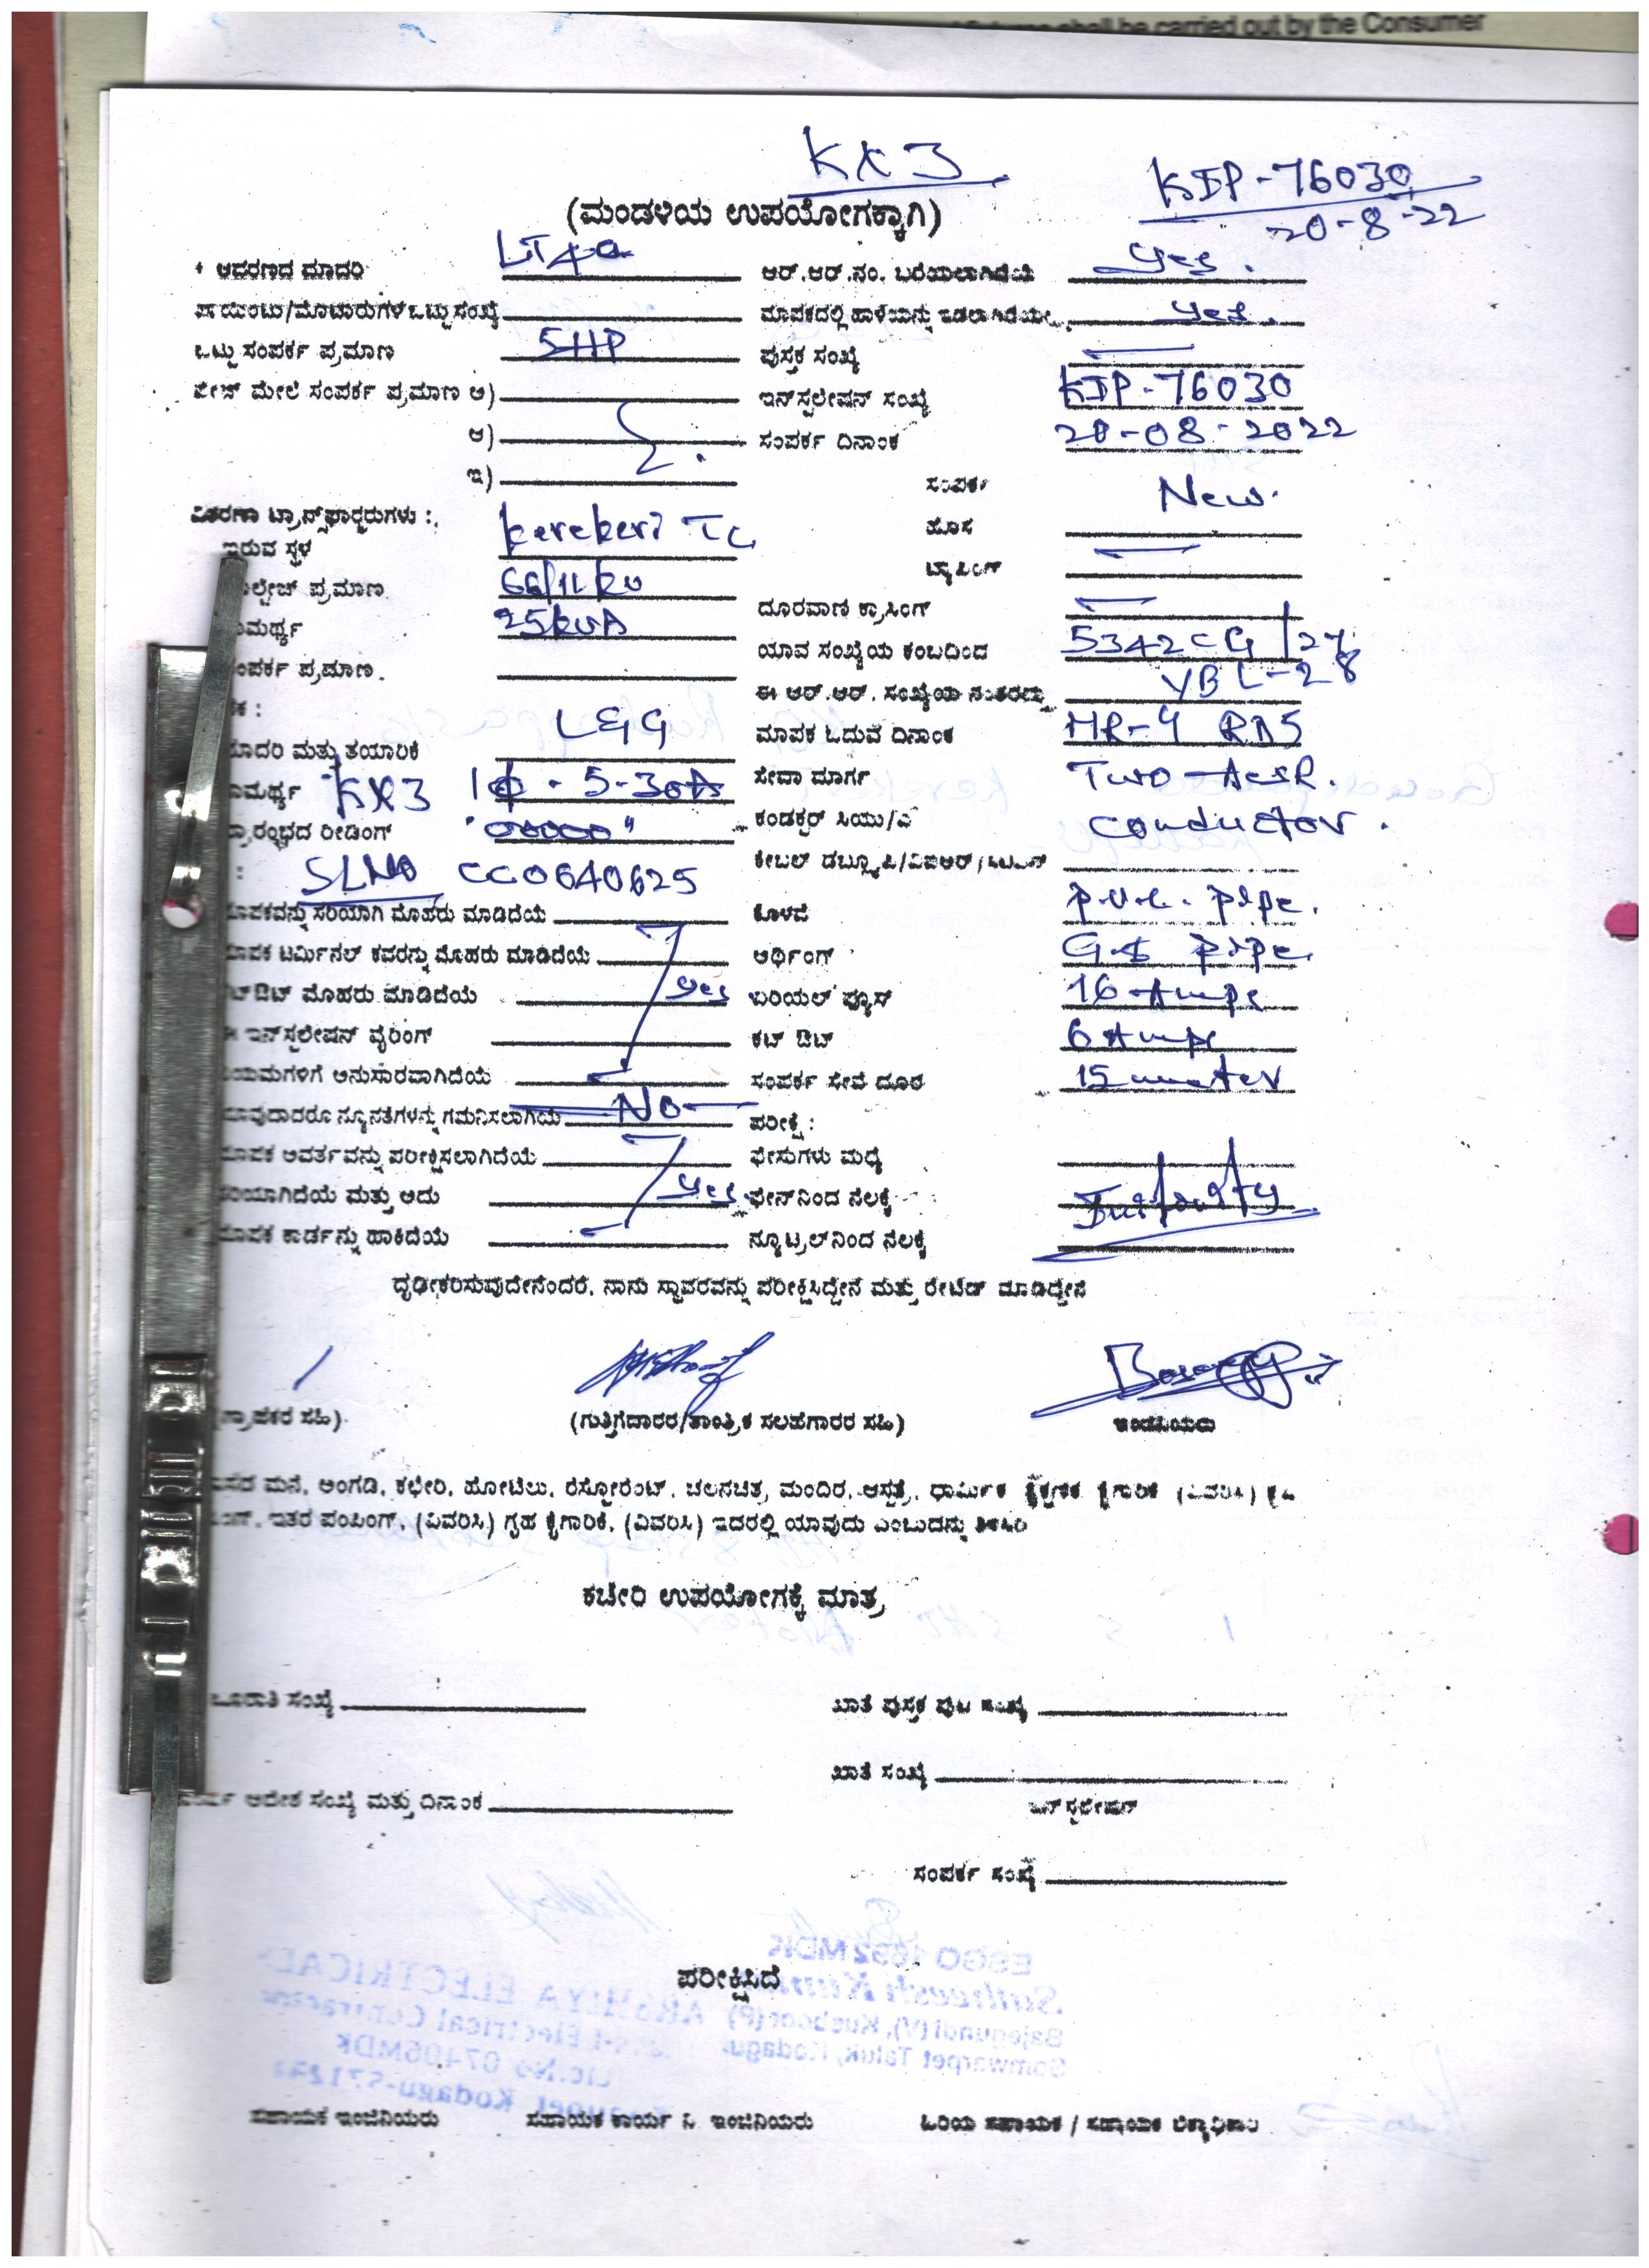 shall be carried out by the Consumer
KX3
KIP-76030
20-8-22
(ಮಂಡಳಿಯ ಉಪಯೋಗಕ್ಕಾಗಿ)
ಆವರಣದ ಮಾದರಿ LT4a ಆರ್.ಆರ್.ನಂ. ಬರೆಯಲಾಗಿದೆಯೆ Yes.
ಪಾಯಿಂಟು/ಮೋಟಾರುಗಳ ಒಟ್ಟು ಸಂಖ್ಯೆ ಮಾಪಕದಲ್ಲಿ ಹಾಳೆಯನ್ನು ಇಡಲಾಗಿದೆಯೇ Yes.
ಒಟ್ಟು ಸಂಪರ್ಕ ಪ್ರಮಾಣ 5HP ಪುಸ್ತಕ ಸಂಖ್ಯೆ
ಫೇಜ್ ಮೇಲೆ ಸಂಪರ್ಕ ಪ್ರಮಾಣ ಅ) ಇನ್‌ಸ್ಟಲೇಷನ್ ಸಂಖ್ಯೆ KIP-76030
ಆ) ಸಂಪರ್ಕ ದಿನಾಂಕ 20-08-2022
ಇ) ಸಂಪರ್ಕ New.
ವಿತರಣಾ ಟ್ರಾನ್ಸ್‌ಫಾರ್ಮರುಗಳು : ಹೊಸ
ಇರುವ ಸ್ಥಳ kerekeri TC ಟ್ಯಾಪಿಂಗ್
ಪ್ರಮಾಣ 66/11 kv ದೂರವಾಣಿ ಕ್ರಾಸಿಂಗ್
25kVA ಯಾವ ಸಂಖ್ಯೆಯ ಕಂಬದಿಂದ 5342CG/27
ಸಂಪರ್ಕ ಪ್ರಮಾಣ. ಈ ಆರ್.ಆರ್. ಸಂಖ್ಯೆಯ ನಂತರದ್ದು YBL-28
ಮಾದರಿ ಮತ್ತು ತಯಾರಿಕೆ L&G ಮಾಪಕ ಓದುವ ದಿನಾಂಕ MR-4 RD5
KX3 1ф - 5-30A ಸೇವಾ ಮಾರ್ಗ Two-Acsr.
ಪ್ರಾರಂಭದ ರೀಡಿಂಗ್ "00000" ಕಂಡಕ್ಟರ್ ಸಿಯು/ಎ conductor.
SLNO CC0640625 ಕೇಬಲ್
ಮಾಪಕವನ್ನು ಸರಿಯಾಗಿ ಮೊಹರು ಮಾಡಿದೆಯೆ ಕೊಳವೆ P.V.C. pipe.
ಮಾಪಕ ಟರ್ಮಿನಲ್ ಕವರನ್ನು ಮೊಹರು ಮಾಡಿದೆಯೆ ಆರ್ಥಿಂಗ್ G.I pipe.
ಕಟ್ ಔಟ್ ಮೊಹರು ಮಾಡಿದೆಯೆ Yes ಏರಿಯಲ್ ಫ್ಯೂಸ್ 16 Amps
ಈ ಇನ್‌ಸ್ಟಲೇಷನ್ ವೈರಿಂಗ್ ಕಟ್ ಔಟ್ 6 Amps
ನಿಯಮಗಳಿಗೆ ಅನುಸಾರವಾಗಿದೆಯೆ ಸಂಪರ್ಕ ಸೇವೆ ದೂರ 15 meter
ಯಾವುದಾದರೂ ನ್ಯೂನತೆಗಳನ್ನು ಗಮನಿಸಲಾಗಿದೆಯೆ No ಪರೀಕ್ಷೆ :
ಮಾಪಕ ಆವರ್ತವನ್ನು ಪರೀಕ್ಷಿಸಲಾಗಿದೆಯೆ ಫೇಸುಗಳು ಮಧ್ಯೆ
ಸರಿಯಾಗಿದೆಯೆ ಮತ್ತು ಅದು Yes. ಫೇಸ್‌ನಿಂದ ನೆಲಕ್ಕೆ Infinity
ಮಾಪಕ ಕಾರ್ಡನ್ನು ಹಾಕಿದೆಯೆ ನ್ಯೂಟ್ರಲ್‌ನಿಂದ ನೆಲಕ್ಕೆ
ದೃಢೀಕರಿಸುವುದೇನೆಂದರೆ, ನಾನು ಸ್ಥಾವರವನ್ನು ಪರೀಕ್ಷಿಸಿದ್ದೇನೆ ಮತ್ತು ರೇಟೆಡ್ ಮಾಡಿದ್ದೇನೆ
(ಗ್ರಾಹಕರ ಸಹಿ) (ಗುತ್ತಿಗೆದಾರರ/ತಾಂತ್ರಿಕ ಸಲಹೆಗಾರರ ಸಹಿ) ಇಂಜಿನಿಯರು
ವಾಸದ ಮನೆ, ಅಂಗಡಿ, ಕಛೇರಿ, ಹೋಟೆಲು, ರೆಸ್ಟೋರೆಂಟ್, ಚಲನಚಿತ್ರ, ಮಂದಿರ, ಆಸ್ಪತ್ರೆ, ಧಾರ್ಮಿಕ ಶೈಕ್ಷಣಿಕ ಕೈಗಾರಿಕೆ (ವಿವರಿಸಿ)
ಇತರ ಪಂಪಿಂಗ್, (ವಿವರಿಸಿ) ಗೃಹ ಕೈಗಾರಿಕೆ, (ವಿವರಿಸಿ) ಇದರಲ್ಲಿ ಯಾವುದು ಎಂಬುದನ್ನು ತಿಳಿಸಿರಿ
ಕಚೇರಿ ಉಪಯೋಗಕ್ಕೆ ಮಾತ್ರ
ಸಂಖ್ಯೆ ಖಾತೆ ಪುಸ್ತಕ ಪುಟ ಸಂಖ್ಯೆ
ಖಾತೆ ಸಂಖ್ಯೆ
ಆದೇಶ ಸಂಖ್ಯೆ ಮತ್ತು ದಿನಾಂಕ ಇನ್‌ಸ್ಟಲೇಷನ್
ಸಂಪರ್ಕ ಸಂಖ್ಯೆ
ಪರೀಕ್ಷಿಸಿದೆ
ಸಹಾಯಕ ಇಂಜಿನಿಯರು ಸಹಾಯಕ ಕಾರ್ಯ ನಿ. ಇಂಜಿನಿಯರು ಹಿರಿಯ ಸಹಾಯಕ / ಸಹಾಯಕ